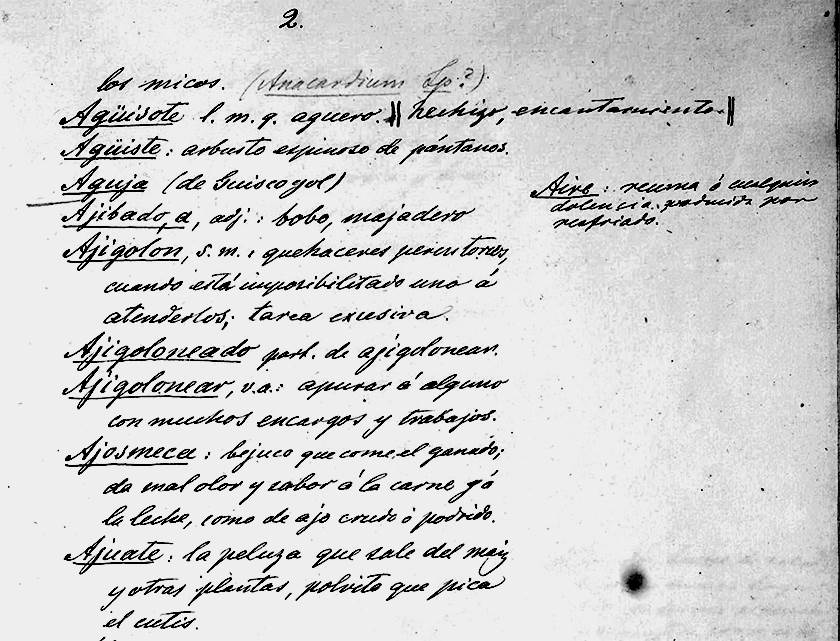 2.
los micos. (Anacardium Sp.?)
Agüisote l. m. q. aguero. || hechizo, encantamiento. ||
Agüiste: arbusto espinoso de pántanos.
Aguja (de Guiscoyol)
Ajibado, a, adj.: bobo, majadero
Ajigolon, s. m.: quehaceres perentorios,
cuando está imposibilitado uno á
atenderlos; tarea excesiva.
Ajigoloneado part. de ajigolonear.
Ajigolonear, v. a.: apurar á alguno
con muchos encargos y trabajos.
Ajosmeca: bejuco que come el ganado;
da mal olor y sabor á la carne y á
la leche, como de ajo crudo ó podrido.
Ajuate: la peluza que sale del maiz
y otras plantas, polvito que pica
el cutis.
Aire: reuma ó cualquier
dolencia producida por
resfriado.